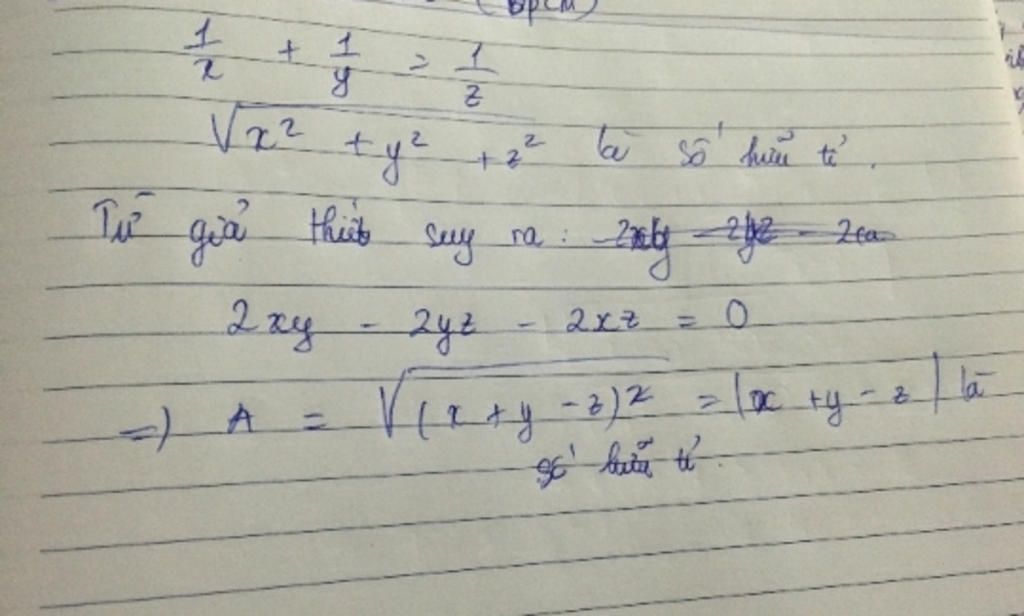 (Đpcm)
1/x + 1/y = 1/z
√(x² + y² + z²) là số hữu tỉ.
Từ giả thiết suy ra:
2xy - 2yz - 2xz = 0
=) A = √((x + y - z)²) = |x + y - z| là
số hữu tỉ.